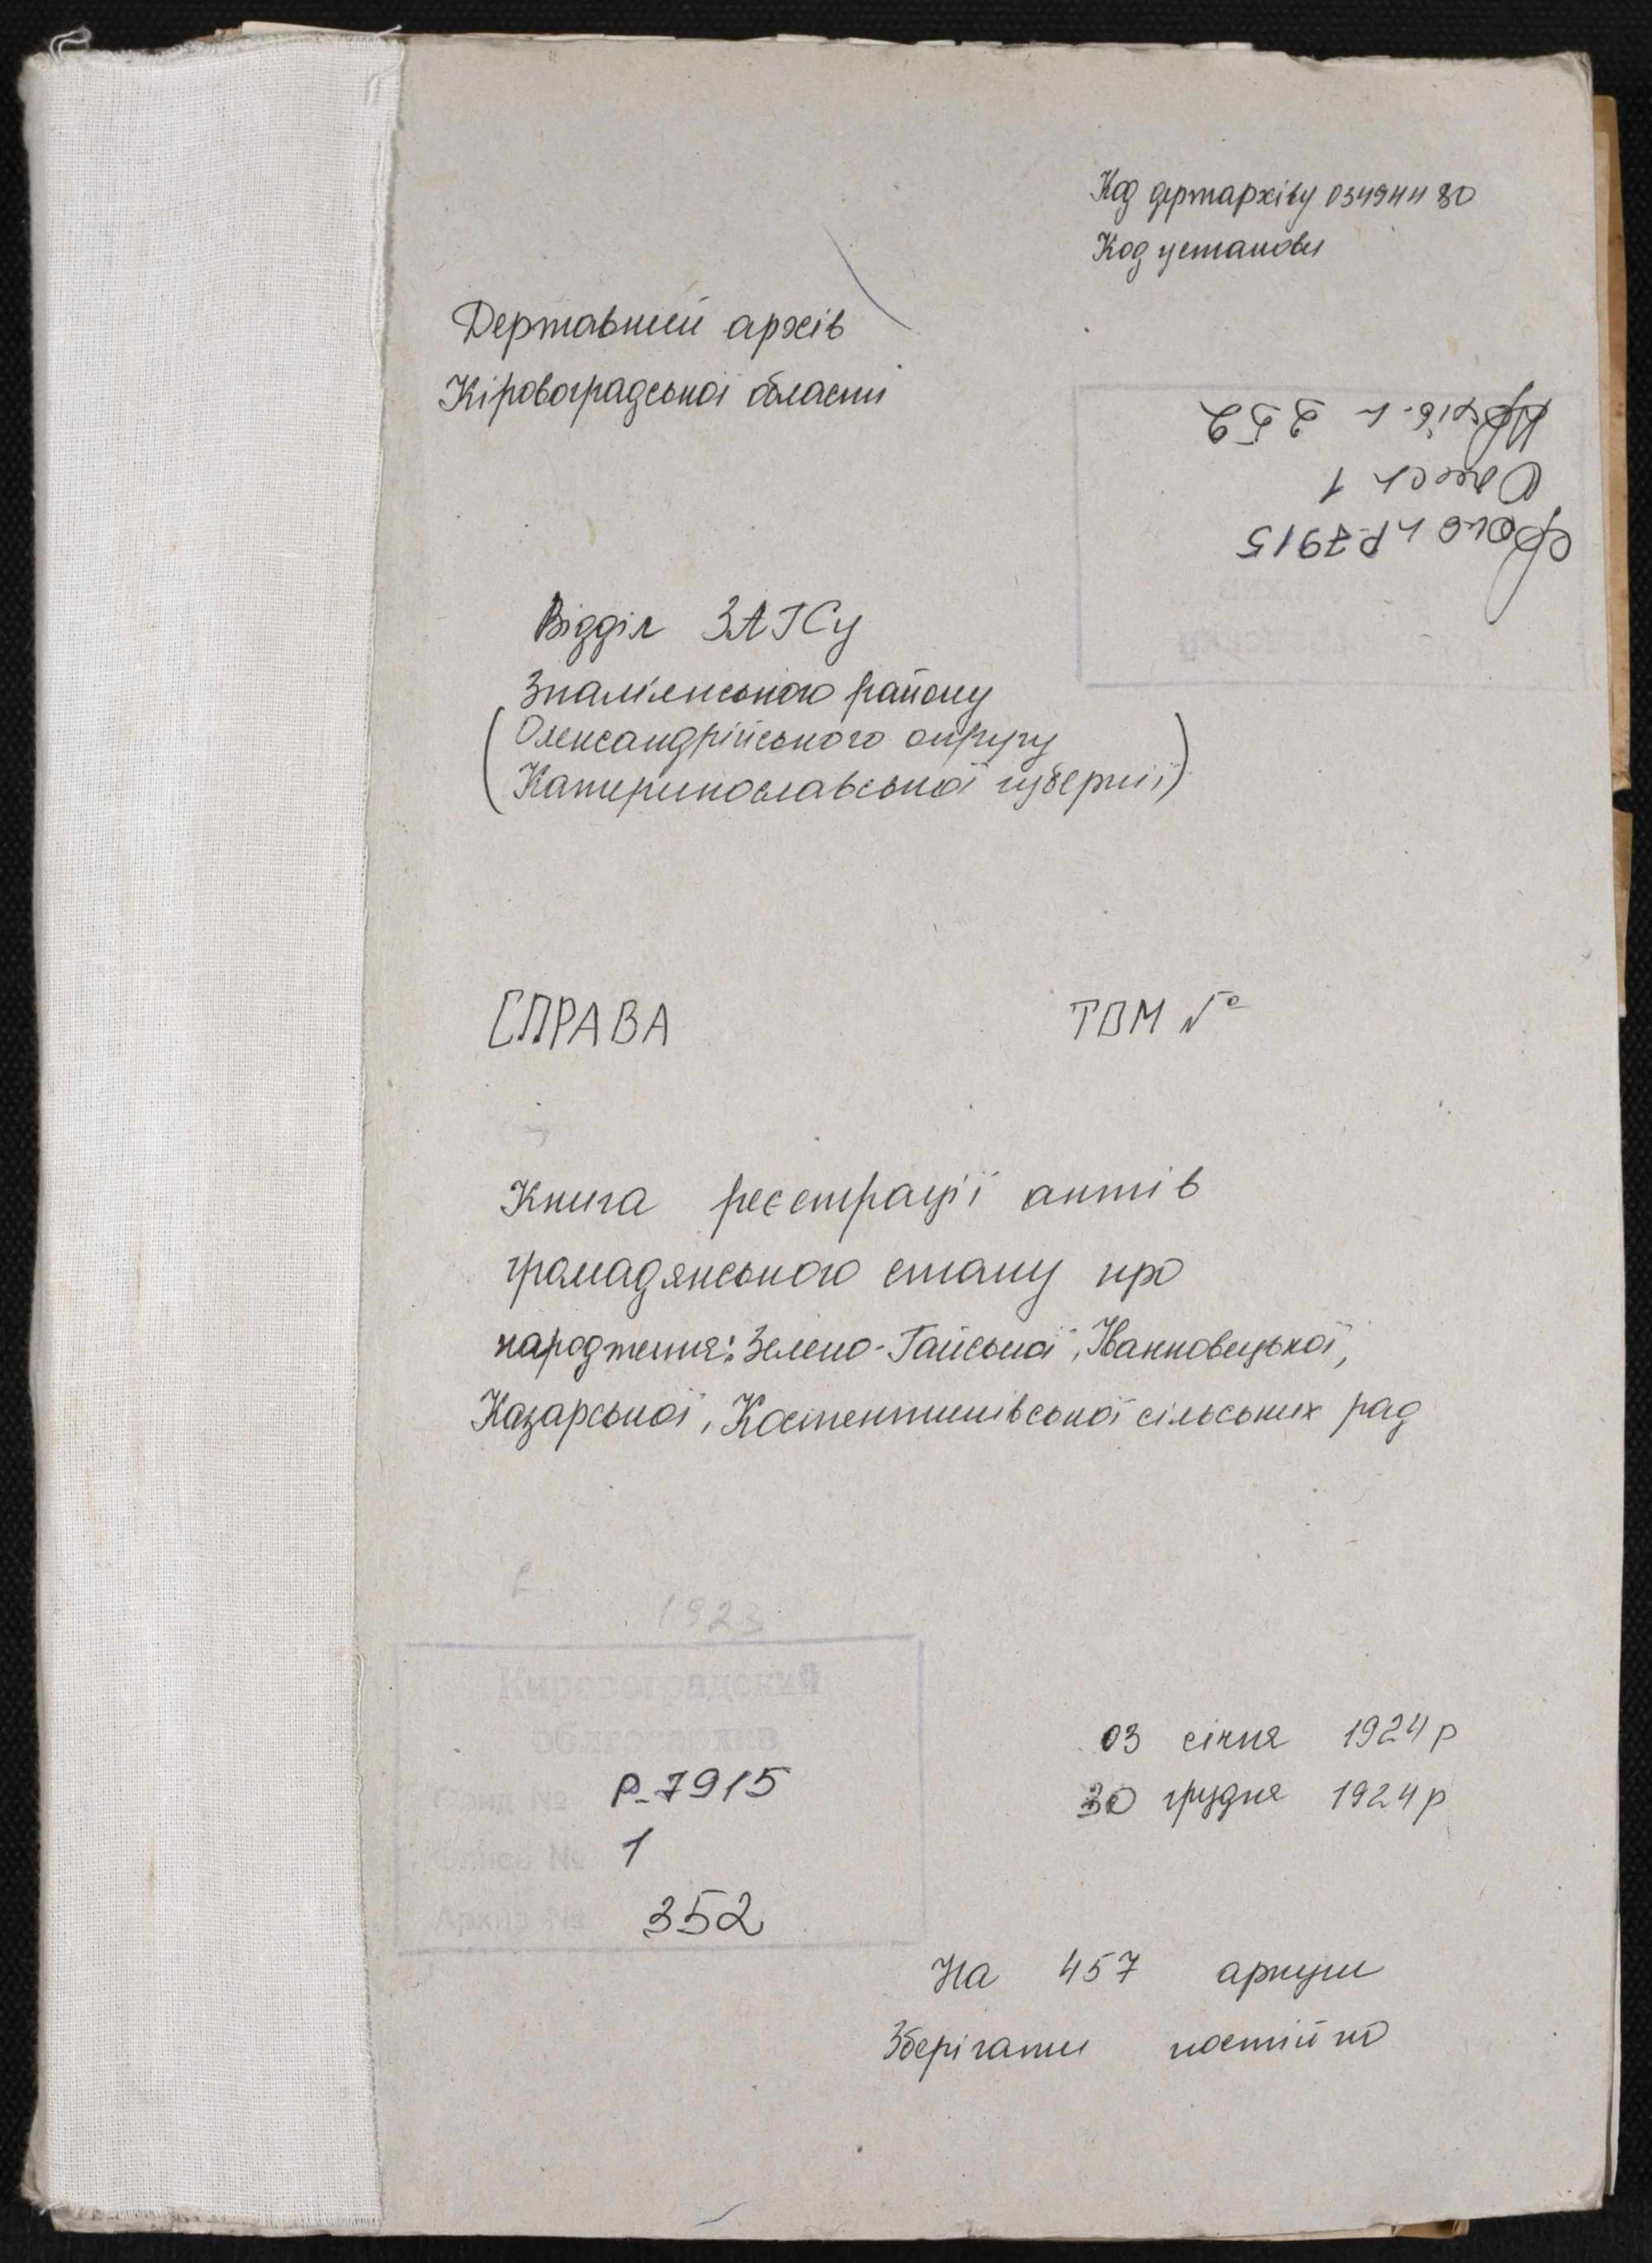 Код держархіву 03494480
Код установи
Державний архів
Кіровоградської області
Фонд Р-7915
Опись 1
Архів. № 252
Відділ ЗАГСу
Знам'янського району
(Олександрійського округу
Катеринославської губернії)
СПРАВА
ТОМ №
Книга реєстрації актів
громадянського стану про
народження: Зелено-Гайської, Іванковецької,
Казарської, Костянтинівської сільських рад
1923
Кировоградский
облгосархив
Фонд № Р-7915
Опись № 1
Архив № 352
03 січня 1924 р
30 грудня 1924 р
На 457 аркуші
Зберігати постійно